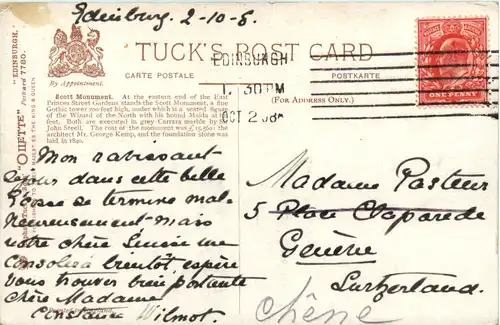 Edinburg. 2-10-8.
TUCK'S POST CARD
CARTE POSTALE
POSTKARTE
By Appointment.
(FOR ADDRESS ONLY.)
EDINBURGH
1. 30PM
OCT 2 08
ONE PENNY
"OILETTE" "EDINBURGH."
Postcard 7780.
Scott Monument. At the eastern end of the East
Princes Street Gardens stands the Scott Monument, a fine
Gothic tower 200 feet high, under which is a seated figure
of the Wizard of the North with his hound Maida at his
feet. Both are executed in grey Carrara marble by Sir
John Steell. The cost of the monument was £15,560: the
architect Mr. George Kemp, and the foundation stone was
laid in 1840.
Mon ravissant
séjour dans cette belle
Ecosse se termine mal-
heureusement - mais
votre chère Suisse me
consolera bientôt, espère
vous trouver bien portante
chère Madame
Constance Wilmot.
Madame Pasteur
5 Place Claparede
Genève
Switzerland.
Chêne